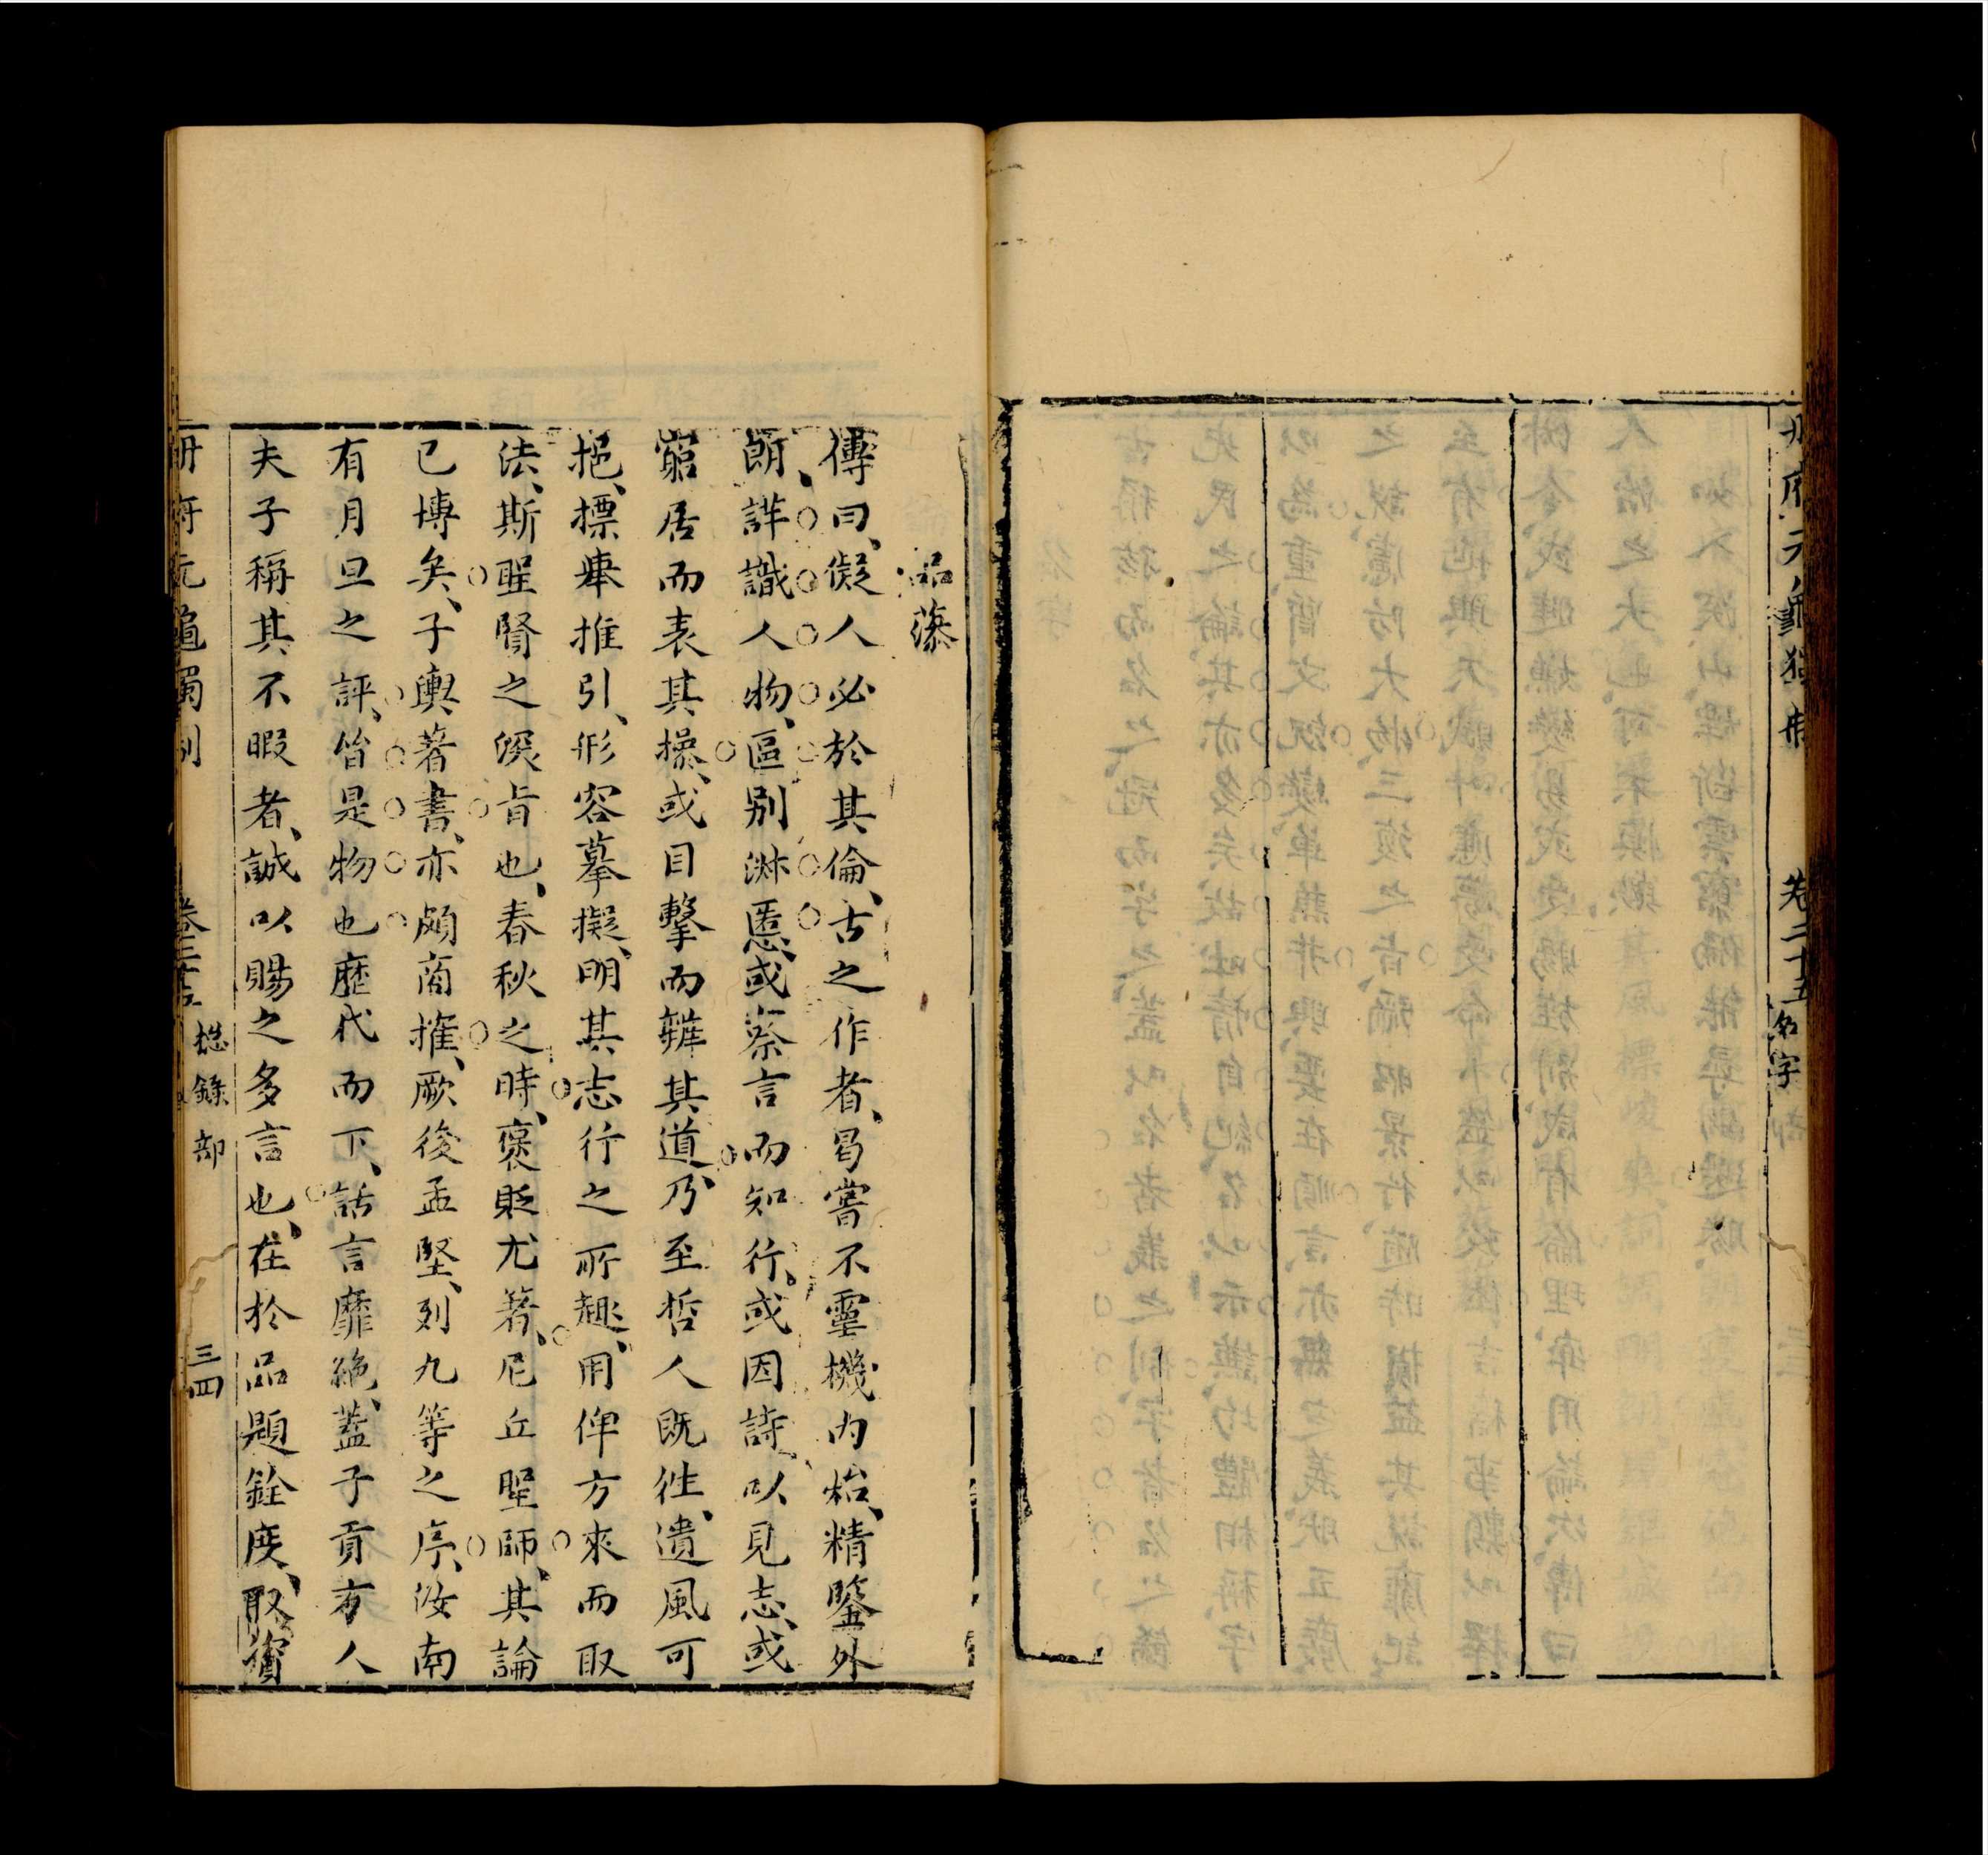 卷二十五 名字
品藻
傳曰、儗人必於其倫、古之作者、曷嘗不靈機內㷩、精鑒外
朗、詳識人物、區別淋慝、或察言而知行、或因詩以見志、或
窮居而表其操、或目擊而辨其道、乃至哲人既往、遺風可
挹、摽舉推引、形容摹擬、明其志行之所趣、用俾方來而取
法、斯聖賢之深旨也、春秋之時、褒貶尤著、尼丘聖師、其論
已博矣、子輿著書、亦頗商搉、厥後孟堅、列九等之序、汝南
有月旦之評、皆是物也歷代而下、話言靡絶、蓋子貢方人
夫子稱其不暇者、誠以賜之多言也、在於品題銓度、取資
冊府元龜獨制 總錄部 三四